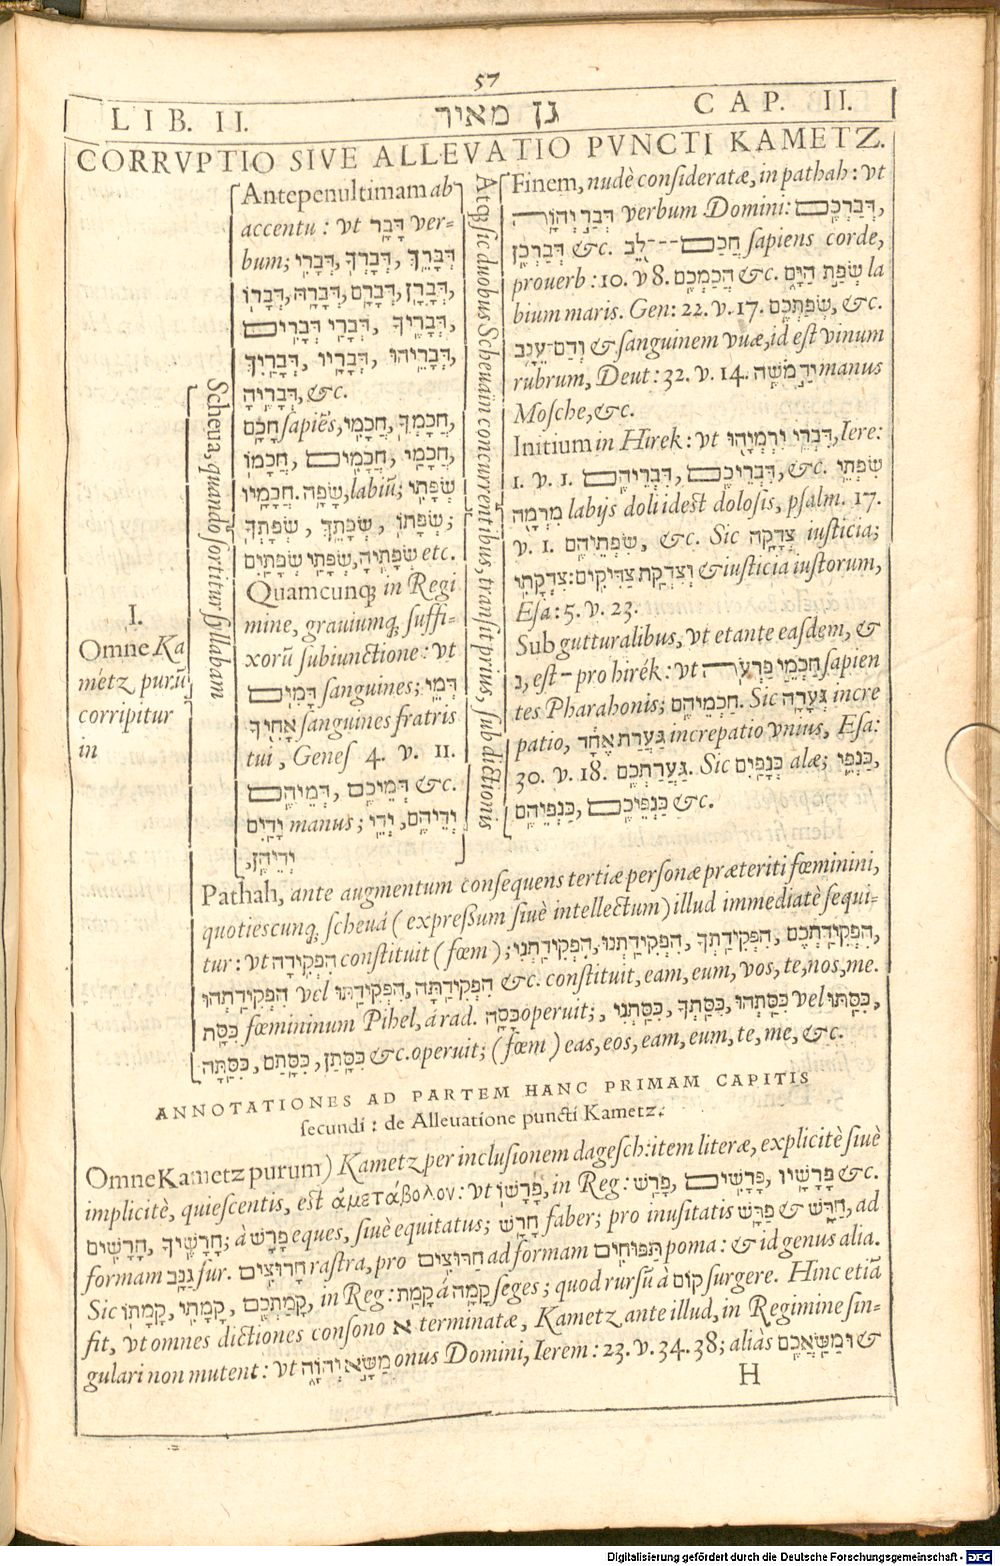 57
LIB. II. גן מאיר CAP. II.
CORRVPTIO SIVE ALLEVATIO PVNCTI KAMETZ.
I.
Omne Ka
metz purũ
corripitur
in
Scheua, quando sortitur syllabam
Antepenultimam ab
accentu: vt דָּבָר ver-
bum; דְּבָרִי, דְּבָרְךָ, דְּבָרֵךְ
דְּבָרוֹ, דְּבָרָהּ, דְּבָרָם, דְּבָרָן,
דְּבָרִים דְּבָרַי, דְּבָרֶיךָ,
דְּבָרַיִךְ, דְּבָרָיו, דְּבָרֵיהוּ,
דְּבָרֶיהָ, &c.
חָכָם sapiẽs, חֲכָמִי, חֲכָמְךָ,
חֲכָמוֹ, חֲכָמִים, חֲכָמַי,
חֲכָמָיו. שָׂפָה, labiũ; שְׂפָתִי
שְׂפָתְךָ, שְׂפָתֵךְ, שְׂפָתוֹ;
שְׂפָתַיִם שְׂפָתַי, שְׂפָתֶיהָ etc.
Quamcunq; in Regi
mine, grauiumq; suffi-
xorũ subiunctione: vt
דָּמִים sanguines; דְּמֵי
אָחִיךָ sanguines fratris
tui, Genes 4. v. 11.
דְּמֵיהֶם, דְּמֵיכֶם &c.
יָדַיִם manus; יְדֵי, יְדֵיהֶם,
יְדֵיהֶן,
Atq; sic duobus Scheuaĩn concurrentibus, transit prius, sub dictionis
Finem, nudè consideratæ, in pathah: vt
דְּבַר יְהוָֹה verbum Domini: דְּבַרְכֶם,
דְּבַרְכֶן &c. חֲכַם---לֵב sapiens corde,
prouerb: 10. v 8. חֲכַמְכֶם &c. שְׂפַת הַיָּם la
bium maris. Gen: 22. v. 17. שְׂפַתְכֶם, &c.
וְדַם־עֵנָב & sanguinem vuæ, id est vinum
rubrum, Deut: 32. v. 14. יַד מֹשֶׁה manus
Mosche, &c.
Initium in Hirek: vt דִּבְרֵי יִרְמְיָהוּ, Iere:
1. v. 1. דִּבְרֵיהֶם, דִּבְרֵיכֶם, &c. שִׂפְתֵי
מִרְמָה labijs doli idest dolosis, psalm. 17.
v. 1. שִׂפְתֵיהֶם, &c. Sic צְדָקָה iusticia;
צִדְקָתִי: וְצִדְקַת צַדִּיקִים & iusticia iustorum,
Esa: 5. v. 23.
Sub gutturalibus, vt et ante easdem, &
נ, est – pro hirék: vt חַכְמֵי פַרְעֹה sapien
tes Pharahonis; חַכְמֵיהֶם. Sic גְּעָרָה incre
patio, גַּעֲרַת אֶחָד increpatio vnius, Esa:
30. v. 18. גַּעֲרַתְכֶם. Sic כְּנָפַיִם alæ; כַּנְפֵי,
כַּנְפֵיהֶם, כַּנְפֵיכֶם &c.
Pathah, ante augmentum consequens tertiæ personæ præteriti fœminini,
quotiescunq; scheuá (expreßum siuè intellectum) illud immediatè sequi-
tur: vt הִפְקִידָה constituit (fœm); הִפְקִידַתְנִי, הִפְקִידַתְנוּ, הִפְקִידַתְךָ, הִפְקִידַתְכֶם,
הִפְקִידַתְהוּ vel הִפְקִידַתּוּ, הִפְקִידַתָּה, &c. constituit, eam, eum, vos, te, nos, me.
כִּסַּת fœmininum Pihel, á rad. כָּסָה operuit; כִּסַּתְנִי, כִּסַּתְךָ, כִּסַּתְהוּ vel כִּסַּתּוּ,
כִּסַּתָּה, כִּסָּתַם, כִּסָּתַן &c. operuit; (fœm) eas, eos, eam, eum, te, me, &c.
ANNOTATIONES AD PARTEM HANC PRIMAM CAPITIS
secundi: de Alleuatione puncti Kametz.
Omne Kametz purum) Kametz per inclusionem dagesch: item literæ, explicitè siuè
implicitè, quiescentis, est ἀμετάβολον: vt פָּרָשׁוֹ, in Reg: פָּרַשׁ, פָּרָשִׁים, פָּרָשָׁיו &c.
חָרָשִׁים, חָרָשֶׁיךָ; à פָּרָשׁ eques, siuè equitatus; חָרָשׁ faber; pro inusitatis פַּרָּשׁ & חַרָּשׁ, ad
formam גַּנָּב fur. חָרוּצִים rastra, pro חַרּוּצִים ad formam תַּפּוּחִים poma: & id genus alia.
Sic קָמָתוֹ, קָמָתִי, קָמַתְכֶם, in Reg: קָמַת á קָמָה seges; quod rursũ à קוּם surgere. Hinc etiã
fit, vt omnes dictiones consono א terminatæ, Kametz ante illud, in Regimine sin-
gulari non mutent: vt מַשָּׂא יְהוָֹה onus Domini, Ierem: 23. v. 34. 38; aliàs וּמַשַּׂאֲכֶם &
H
Digitalisierung gefördert durch die Deutsche Forschungsgemeinschaft - DFG